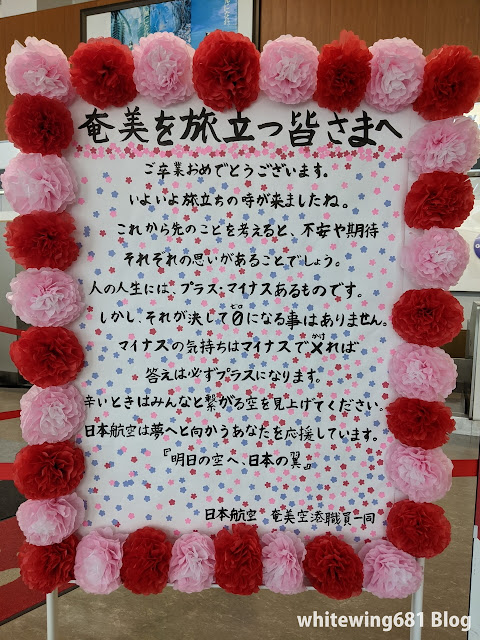 奄美を旅立つ皆さまへ
ご卒業おめでとうございます。
いよいよ旅立ちの時が来ましたね。
これから先のことを考えると、不安や期待
それぞれの思いがあることでしょう。
人の人生には、プラス・マイナスあるものです。
しかし、それが決して0(ゼロ)になる事はありません。
マイナスの気持ちはマイナスで×(かけ)れば
答えは必ずプラスになります。
辛いときはみんなと繋がる空を見上げてください。
日本航空は夢へと向かうあなたを応援しています。
『明日の空へ、日本の翼』
日本航空 奄美空港職員一同
whitewing681 Blog